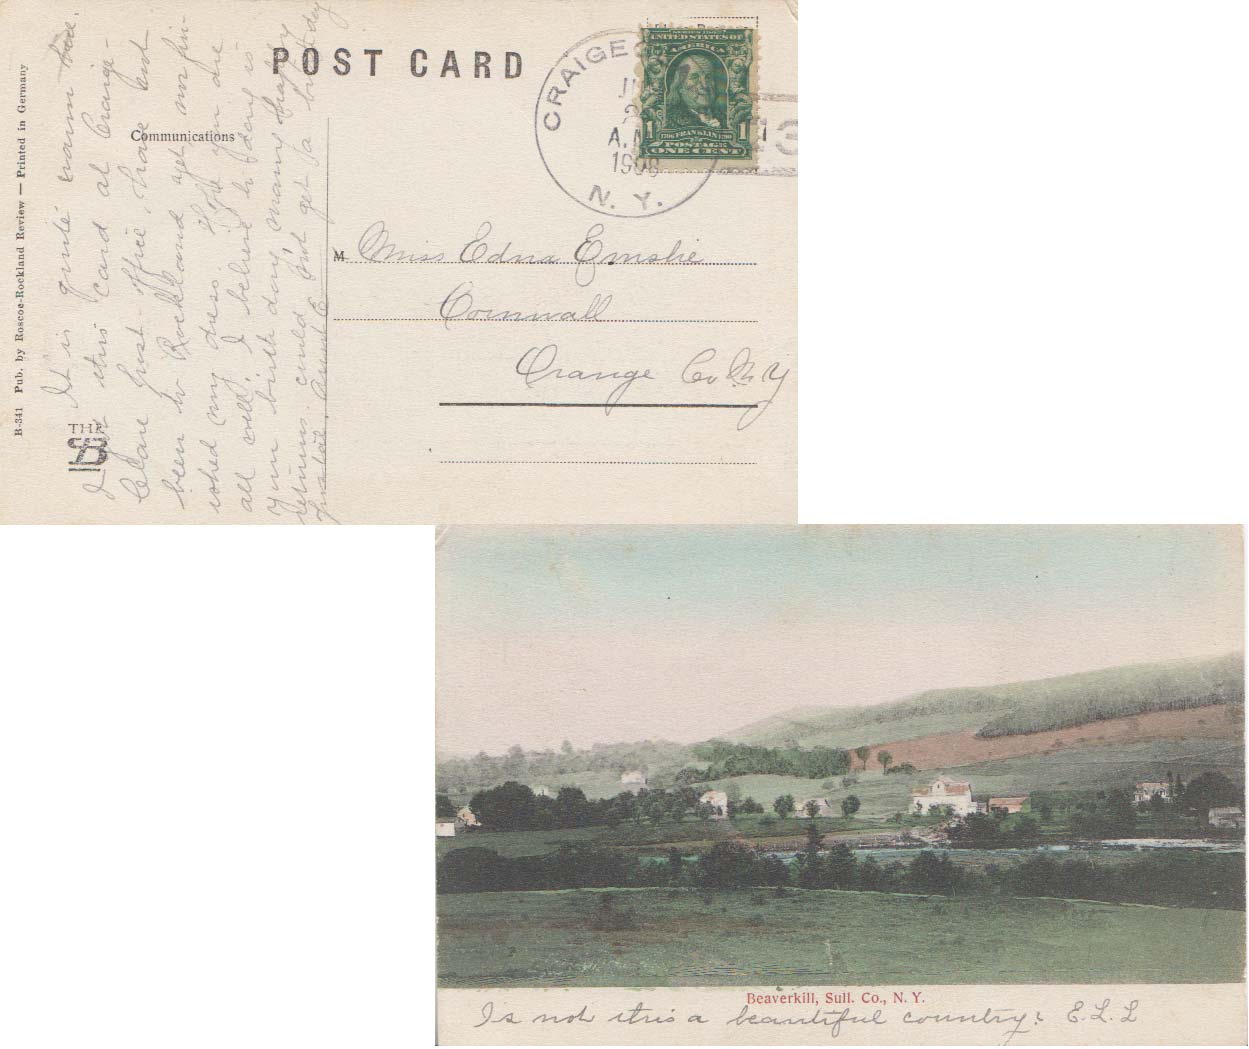 POST CARD
Communications
B-341 Pub. by Roscoe-Rockland Review — Printed in Germany
THE
CRAIGE
A.M
1908
N. Y.
SERIES 1902
UNITED STATES OF
AMERICA
1706 FRANKLIN 1790
1 POSTAGE 1
ONE CENT
3
M Miss Edna Emslie
Cornwall
Orange Co. N. Y
It is quite warm here.
I got this card at Craige-
Clare Post-office, have not
been to Rockland yet nor fin-
ished my dress. Hope you are
all well. I believe to day is
your birth day, many happy
returns. could not get a birthday
postal. Aunt E
Beaverkill, Sull. Co., N. Y.
Is not this a beautiful country? E. L. L